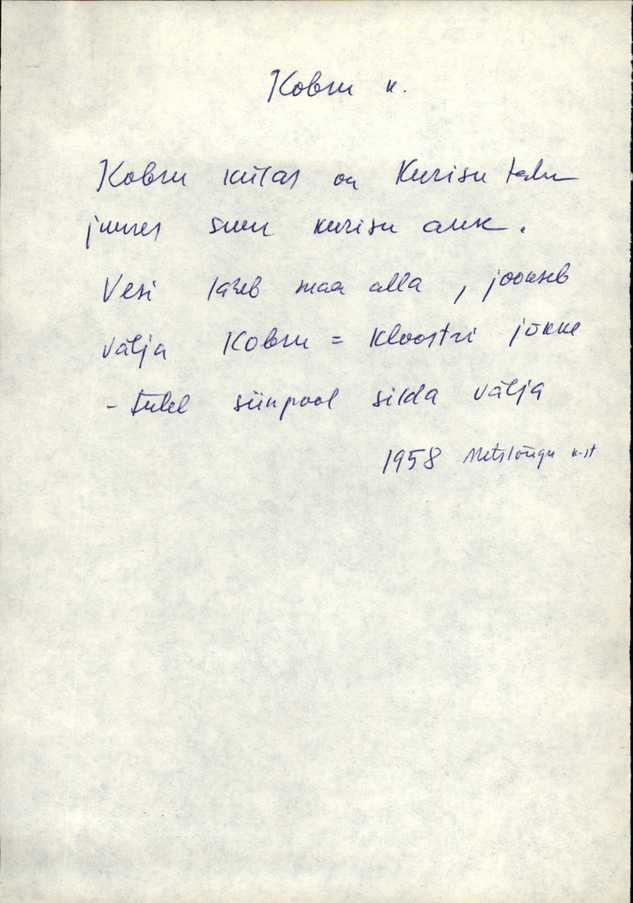 Kobru k.
Kobru külas on Kurisu talu
juures suur kurisu auk.
Vesi läheb maa alla, jookseb
välja Kobru = Kloostri jõkke
- tuleb siinpool silda välja
1958 Metslõugu k-st